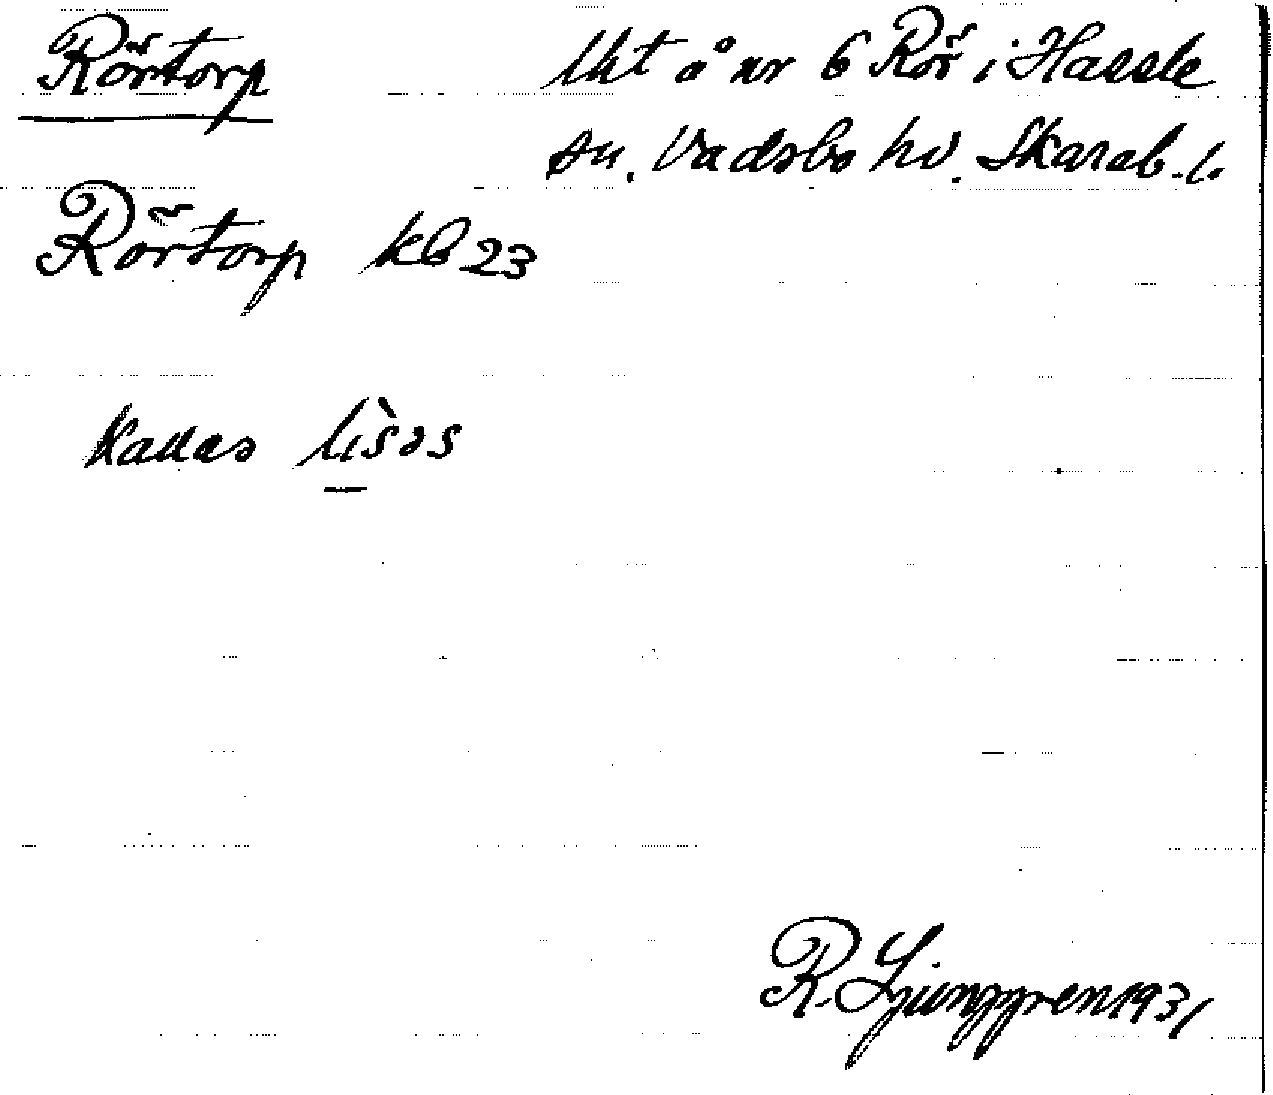 Rörtorp lht å nr 6 Rör i Hassle
sn. Vadsbo hd. Skarab. l.
Rörtorp kb 23
Kallas li̱s̀əs
R. Ljunggren 1931